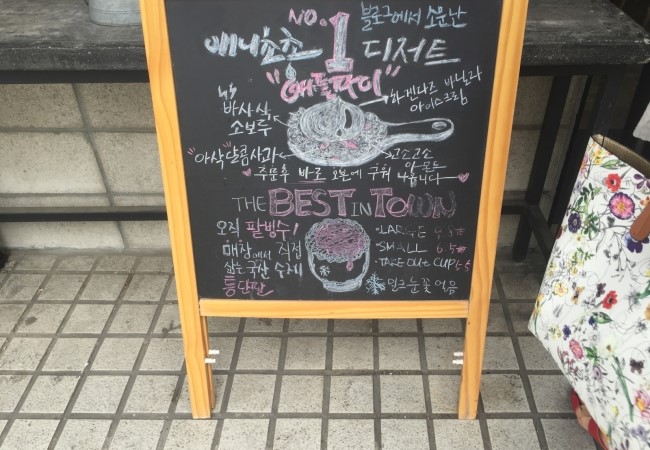 NO.1
블로그에서 소문난
애니쵸쵸 디저트
"애플파이"
바사삭
소보루
하겐다즈 바닐라
아이스크림
"아삭"달콤사과
고소고소
아몬드
주문후 바로 오븐에 구워 나옵니다
THE BEST IN TOWN
오직 팥빙수!
매장에서 직접
삶는 국산 수제
통단팥
·LARGE
·SMALL 6.5
·TAKE OUT CUP 5.5
밀크눈꽃얼음